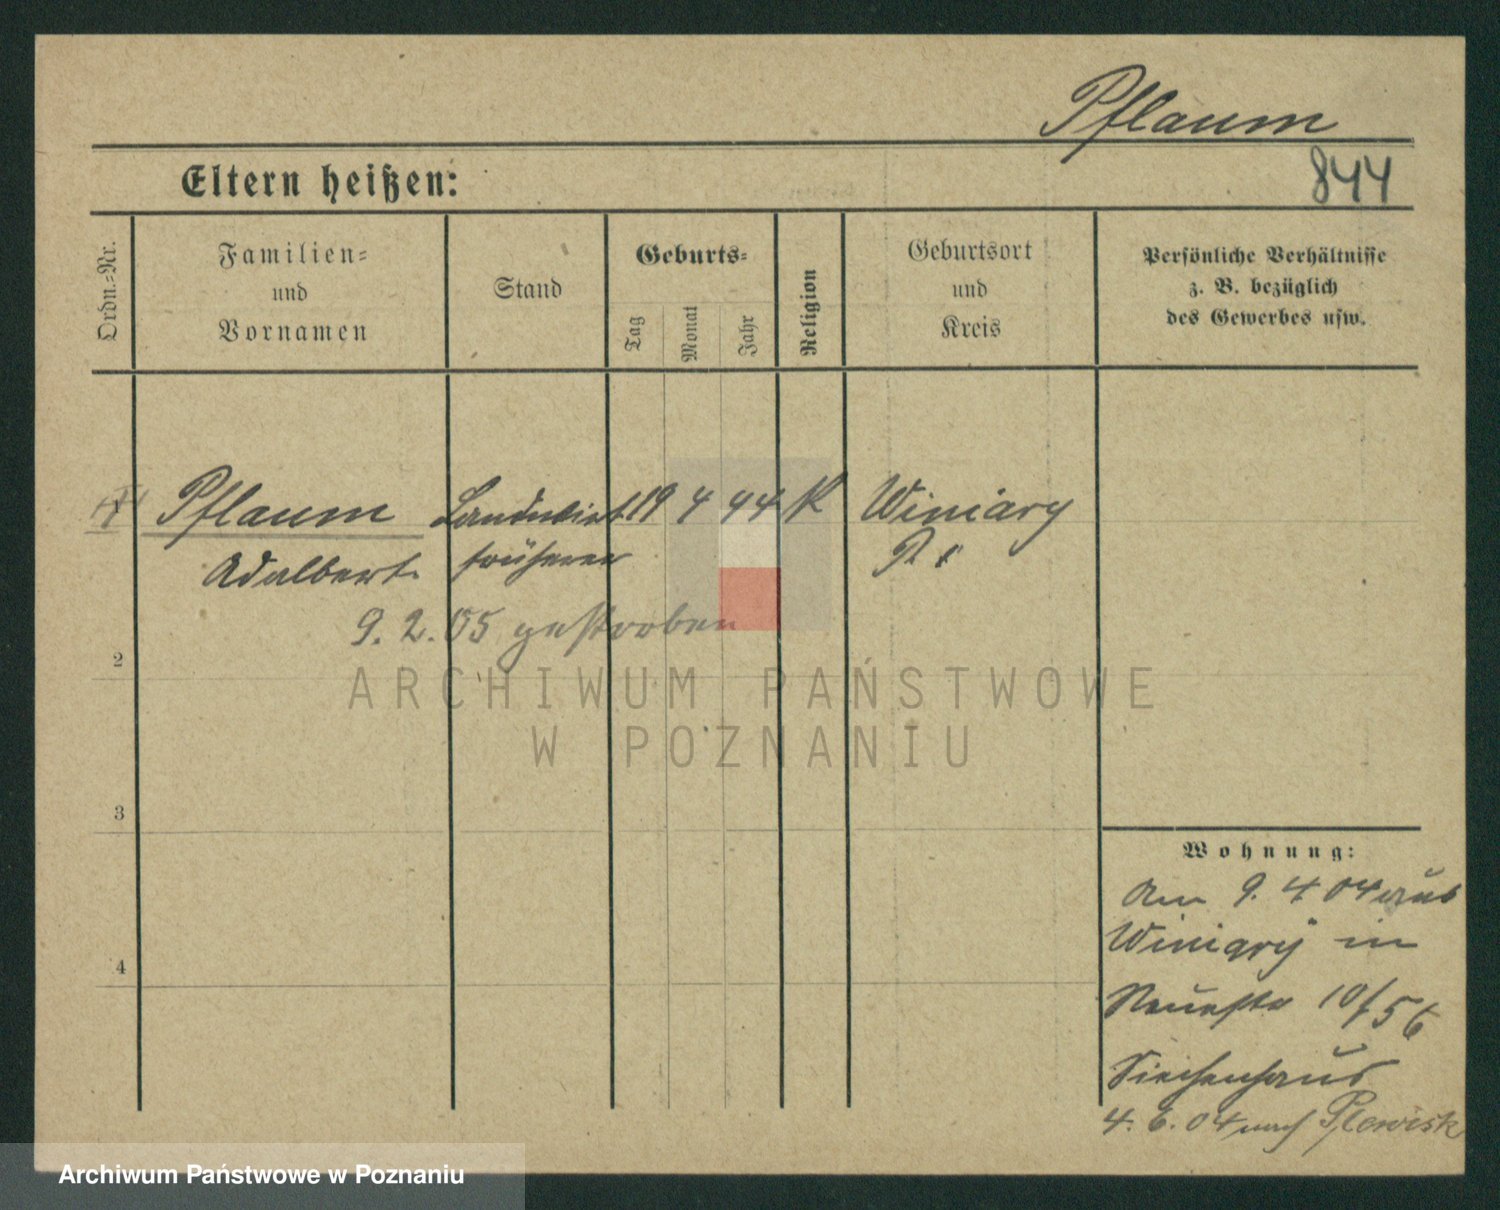 Pflaum
Eltern heißen:
844
Ordn.-Nr.
Familien-
und
Vornamen
Stand
Geburts-
Tag
Monat
Jahr
Religion
Geburtsort
und
Kreis
Persönliche Verhältnisse
z. B. bezüglich
des Gewerbes usw.
Pflaum Landwirt 19 4 44 K Winiary
Adalbert früherer
9. 2. 05 gestorben
2
3
4
ARCHIWUM PAŃSTWOWE
W POZNANIU
Wohnung:
Am 9. 4 04 aus
Winiary in
10/56
Siechenhaus
4. 6. 04 nach Plewisk
Archiwum Państwowe w Poznaniu